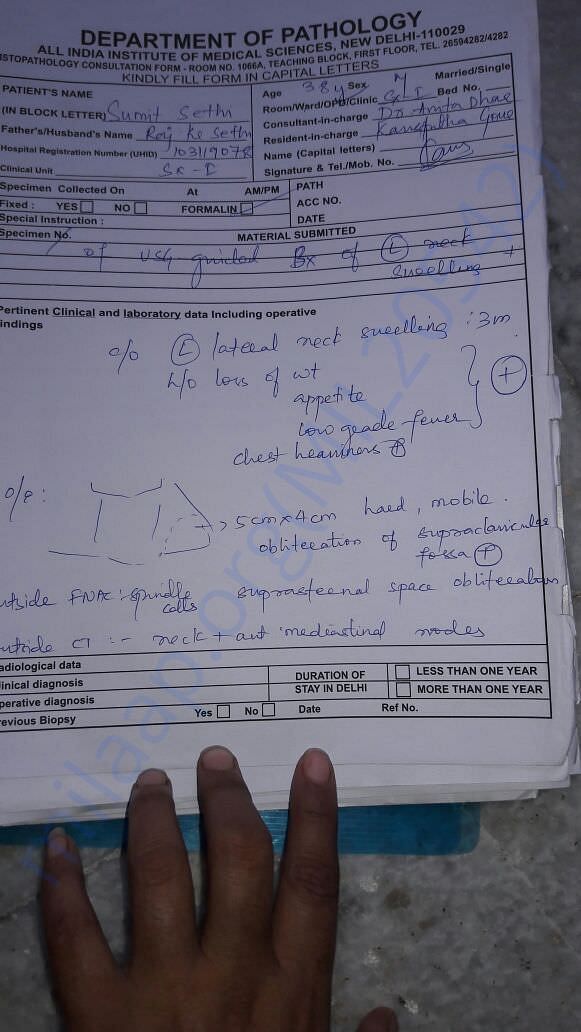 DEPARTMENT OF PATHOLOGY
ALL INDIA INSTITUTE OF MEDICAL SCIENCES, NEW DELHI-110029
ISTOPATHOLOGY CONSULTATION FORM - ROOM NO. 1066A, TEACHING BLOCK, FIRST FLOOR, TEL. 26594282/4282
KINDLY FILL FORM IN CAPITAL LETTERS
PATIENT'S NAME
(IN BLOCK LETTER) Sumit Sethi
Father's/Husband's Name Raj Kr Sethi
Hospital Registration Number (UHID) 103119078
Clinical Unit SX-I
Age 38y Sex M Married/Single
Room/Ward/OPD/Clinic Sx-I Bed No.
Consultant-in-charge Dr Anita Dhar
Resident-in-charge
Name (Capital letters)
Signature & Tel./Mob. No.
Specimen Collected On At AM/PM
Fixed : YES NO FORMALIN
Special Instruction :
PATH
ACC NO.
DATE
Specimen No. MATERIAL SUBMITTED
of USG guided Bx of (L) neck
swelling +
Pertinent Clinical and laboratory data Including operative
indings
c/o (L) lateral neck swelling : 3m
h/o loss of wt
appetite
low grade fever
(+)
chest heaviness (+)
o/e :
→ 5cm x 4cm hard, mobile.
obliteration of supraclavicular
fossa (+)
utside FNAC :- spindle cells
suprasternal space obliteration
utside CT :- neck + ant mediastinal nodes
adiological data
inical diagnosis
perative diagnosis
revious Biopsy Yes No Date Ref No.
DURATION OF
STAY IN DELHI
LESS THAN ONE YEAR
MORE THAN ONE YEAR
milaap.org(MIL205942)